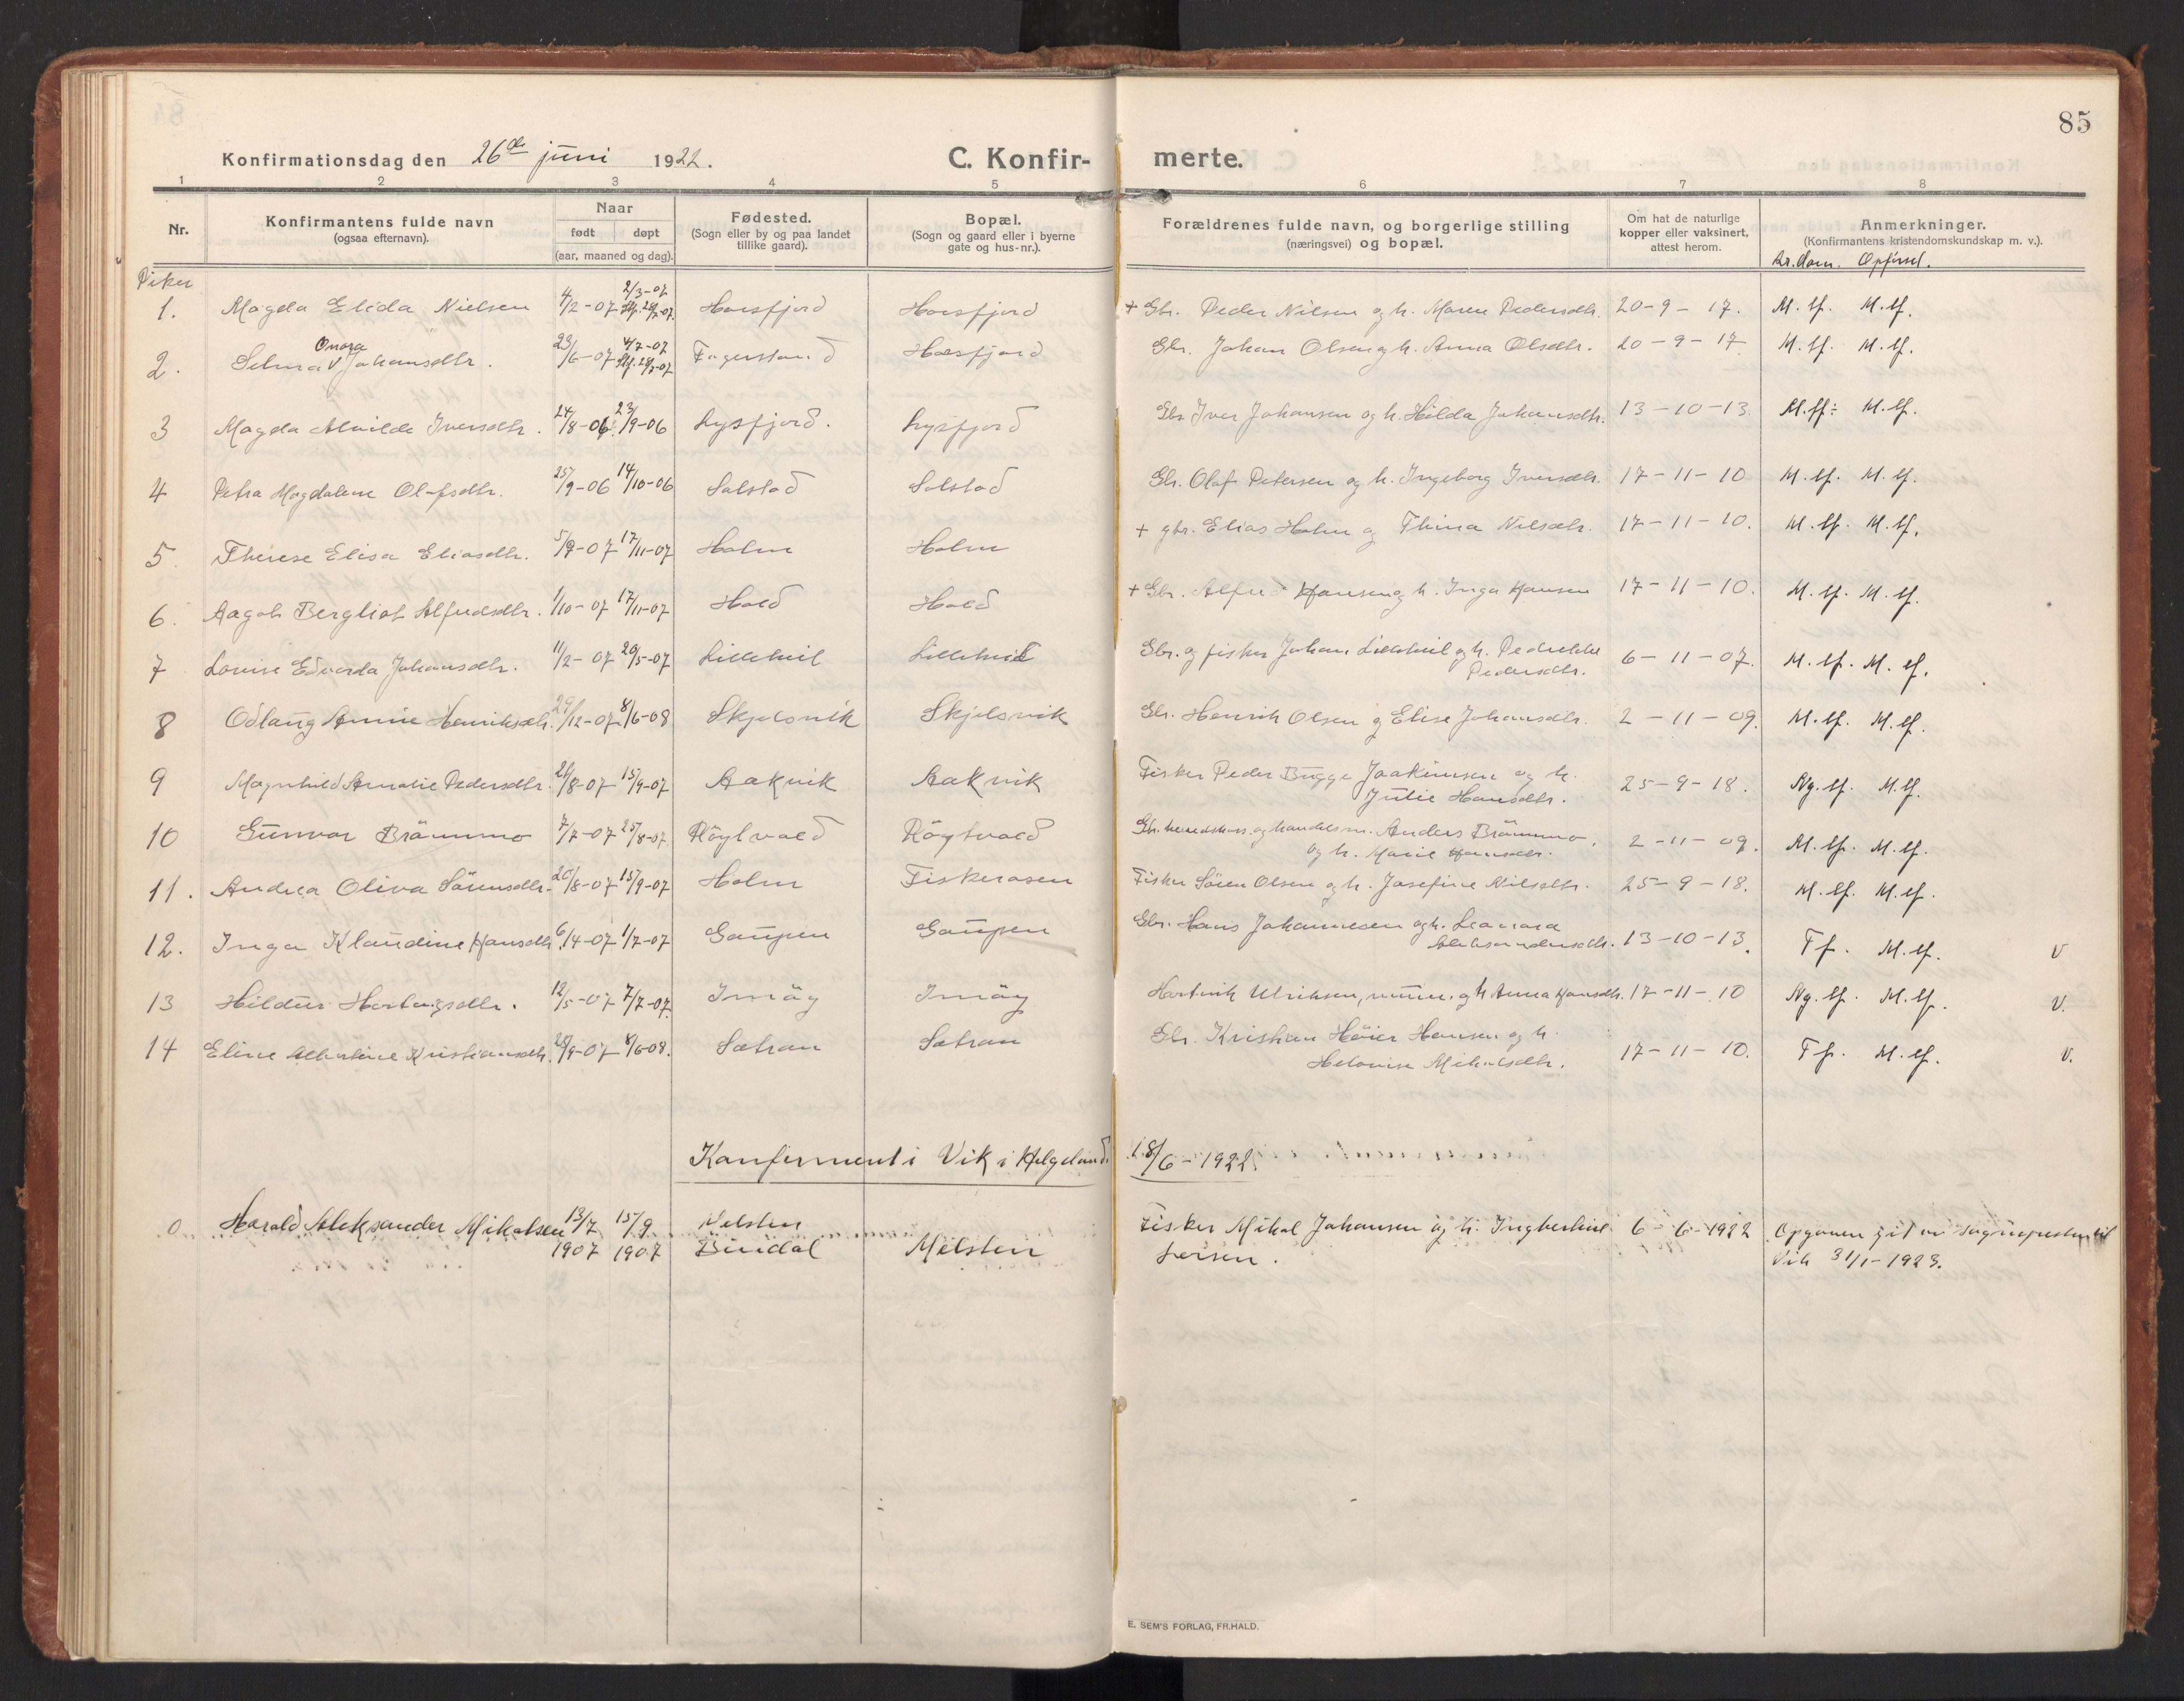 85
Konfirmationsdag den 26de juni 1922. C. Konfir- merte.
1 2 3 4 5 6 7 8
Nr. Konfirmantens fulde navn (ogsaa efternavn). Naar født døpt (aar, maaned og dag). Fødested. (Sogn eller by og paa landet tillike gaard). Bopæl. (Sogn og gaard eller i byerne gate og hus-nr.). Forældrenes fulde navn, og borgerlige stilling (næringsvei) og bopæl. Om hat de naturlige kopper eller vaksinert, attest herom. Anmerkninger. (Konfirmantens kristendomskundskap m. v.).
Kr.dom. Opførsel.
Piker
1. Magda Elida Nielsen 4/2-07 2/3-07 Horsfjord Horsfjord + Gbr. Peder Nilsen og h. Maren Pedersdtr. 20-9-17. M. tf. M. tf.
2. Selma Onora Johansdtr. 23/6-07 4/7-07 Fagerstrand Horsfjord Gbr. Johan Olsen og h. Anna Olsdtr. 20-9-17 M. tf. M. tf.
3 Magda Alvilde Iversdtr. 24/8-06 23/9-06 Lysfjord. Lysfjord Gbr Iver Johansen og h. Hilda Johansdtr. 13-10-13. M. tf: M. tf.
4 Petra Magdalene Olafsdtr. 25/9-06 14/10-06 Solstad Solstad Gbr. Olaf Petersen og h. Ingeborg Iversdtr. 17-11-10 M. tf. M. tf.
5. Therese Elisa Eliasdtr. 5/9-07 17/11-07 Holm Holm + gbr. Elias Holm og Thina Nilsdtr. 17-11-10. M. tf. M. tf.
6. Aagot Bergliot Alfredsdtr. 1/10-07 17/11-07 Hold Hold + Gbr. Alfred Hansen og h. Inga Hansen 17-11-10. M. tf. M. tf.
7 Lovise Edvarda Johansdtr. 11/2-07 20/5-07 Lilleheil Lilleheil Gbr. og fisker Johan Lilleheil og h. Pedrikke Pedersdtr. 6-11-07. M. tf. M. tf.
8 Odlaug Annie Henriksdtr. 29/12-07 8/6-08 Skjelsvik Skjelsvik Gbr. Henrik Olsen og Elise Johansdtr. 2-11-09. M. tf. M. tf.
9 Magnhild Amalie Pedersdtr. 21/8-07 15/9-07 Aakvik Aakvik Fisker Peder Bugge Joakimsen og h. Julie Hansdtr. 25-9-18. Ng. tf. M. tf.
10 Gunvor Brämmo 7/7-07 25/8-07. Röytvold Röytvold Gbr. og handelsm. Anders Brämmo. og h. Marie Hansdtr. 2-11-09. M. tf. M. tf.
11. Andrea Oliva Sörensdtr. 20/8-07 15/9-07 Holm Fiskerosen Fisker Sören Olsen og h. Josefine Nilsdtr. 25-9-18. M. tf. M. tf.
12. Inga Klaudine Hansdtr 6/4-07 1/7-07 Gaupen Gaupen Gbr. Hans Johannesen og h. Leonora Aleksandersdtr. 13-10-13. T f. M. tf. V
13 Hildur Hartvigsdtr. 12/5-07 7/7-07. Imöy Imöy Hartvik Ulriksen, og h Anna Hansdtr. 17-11-10 Ng. tf. M. tf. V.
14 Eline Albertine Kristiansdtr. 28/9-07 8/6-08. Sætran Sætran Gbr. Kristian Høier Hansen og h. Helovise Mikalsdtr. 17-11-10. T f. M. tf. V.
Konfirmert i Vik i Helgeland 18/6-1922.
0 Harald Aleksander Mikalsen 13/7 1907 15/9 1907 Melsten Bindal Melsten Fisker Mikal Johansen og h. Ingbertine Leisen. 6-6-1922 Opgaven git av sognepresten til Vik 31/1-1923.
E. SEM'S FORLAG, FR.HALD.